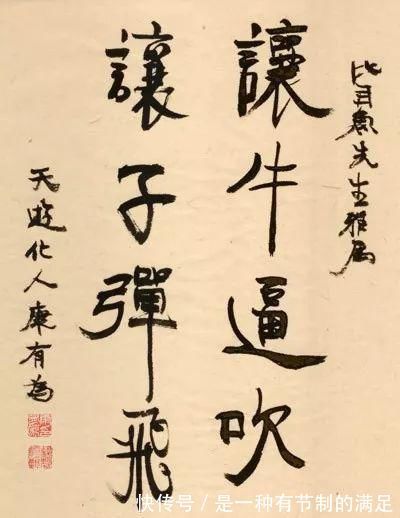 比目魚先生雅属
讓牛逼吹
讓子彈飛
天遊化人康有為
快传号 / 是一种有节制的满足